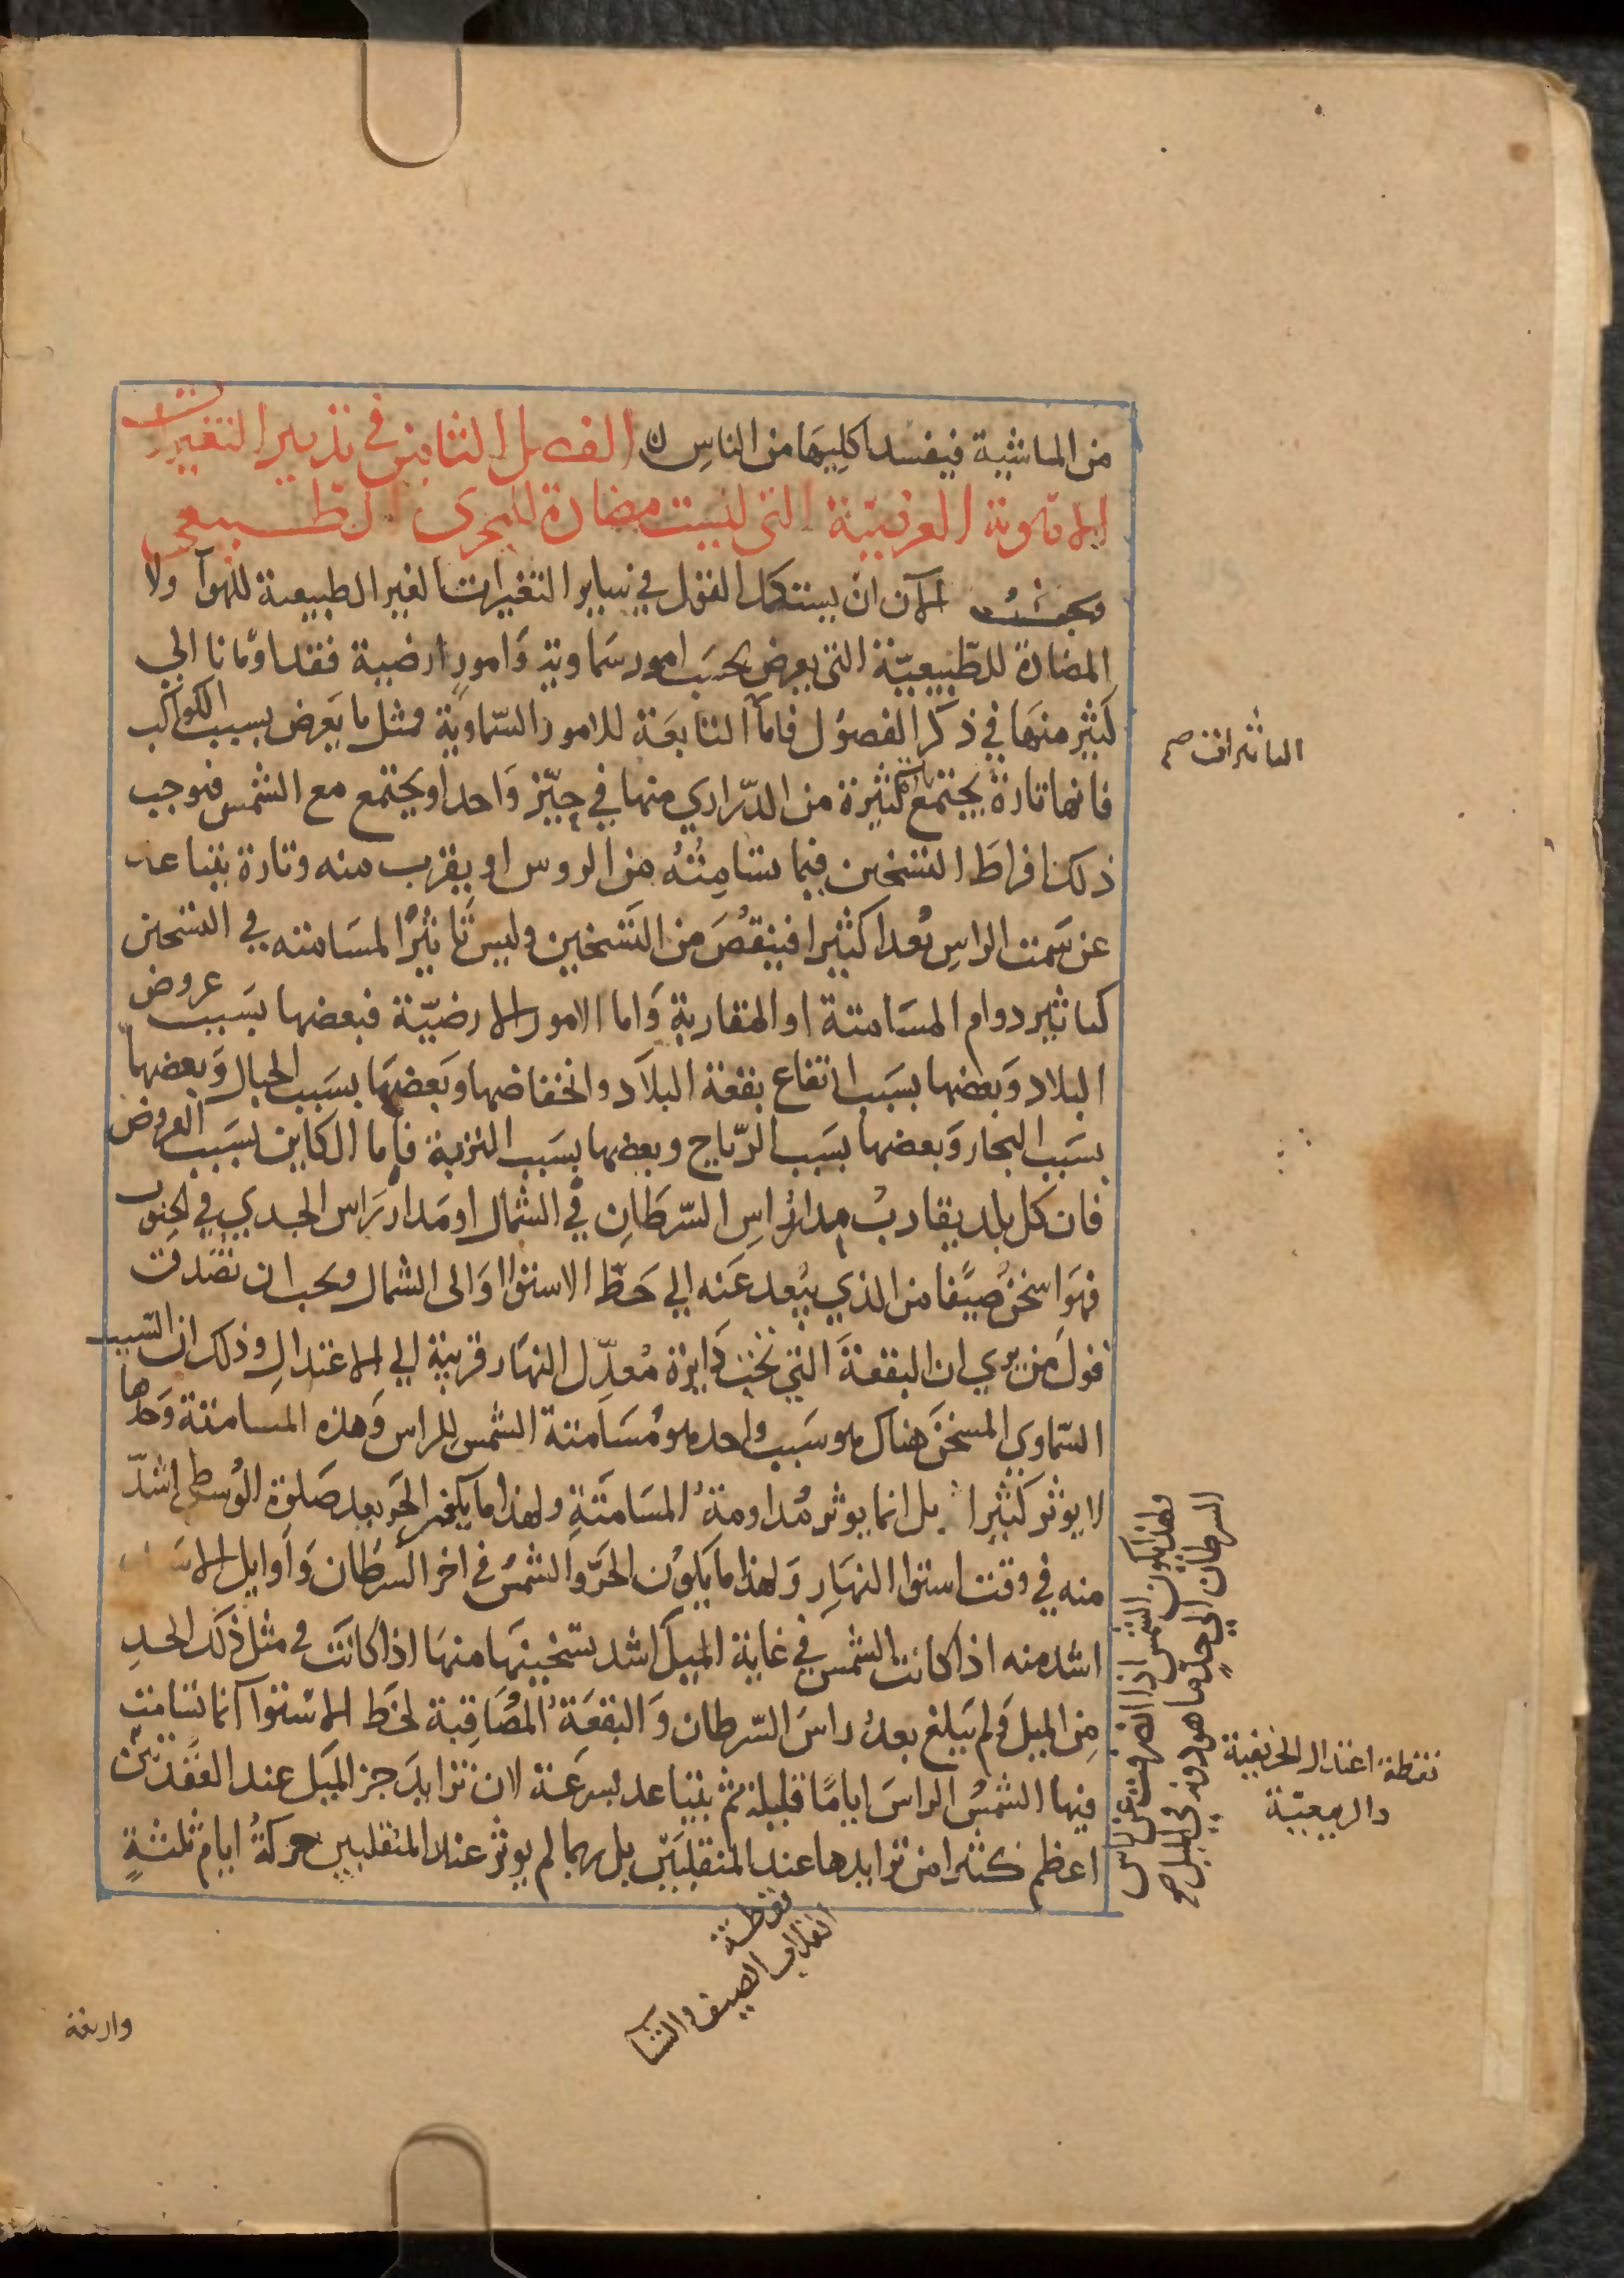 من الماشية فيفسد اكليها من الناس ن الفصل الثامن في تدبير التغيرات
الاهوية الغريبة التي ليست مضادة للمجرى الطبيعي
ويجب الآن ان يستكمل القول في ساير التغيرات الغير الطبيعية للهوآ ولا
المضادة للطبيعيّة التي يعرض بحسَب امور سَماوية وَامورٍ ارضية فقد اومانا الي
كثير منهَا في ذكر الفصوُل فامآ التابعَة للامور السّماويّة فمثل ما يَعرض بسبب الكواكب
فانها تارةً يجتمع كثيرة من الدّراري منها في حيّز وَاحد او يجتمع مع الشمس فيوجب
ذلك افراطَ التسخين فيما تسامِتُهُ من الروس او يقرب منه وتارة يتباعد
عن سَمت الراسِ بُعدا كثيرا فينقصُ من التَسخين وليس تَاثيرُ المسَامتته في التسخين
كتاثير دوام المسَامتة او المقاربة وَاما الامور الارضيّة فبعضها بسَبب عروض
البلاد وَبعضها بسَبب ارتفاع بقعة البلاَد وانخفاضها وبَعضهَا بسَبب الجبال وَبعضها
بسَبب البحار وَبعضها بسَبب الرّياح وبعضها بسَبب التربة فاما الكاين بسَبب العروض
فان كل بلد يقاربُ مدار راسِ السّرطَانِ في الشمال او مَدار رَاس الجدي في الجنوب
فهوَ اسخنُ صيَّفا من الذي يبعد عَنه الي خَطّ الاستوا وَالى الشمال ويجب ان تصَدق
قول من يري ان البقعةَ التي تحت دَايرة مُعدّل النهَار قريبة الي الاعتدالِ وذلك ان السّبب
السّماوي المسخنَ هناك هو سَبب واحد هو مُسَامتة الشمس للراس وَهذه المسامتة وَحدها
لا يوثر كثيرا بل انما يوثر مُداومةُ المسَامتَةِ ولهذا ما يكون الحَر بعد صَلوٰة الوُسطى اشدّ
منه في وقت استوا النهَارِ وَلهذا ما يَكوُن الحَرّ وَالشمسُ في اخر السَّرطَان وَاَوايل الاسَد
اشد منه اذا كانت الشمس في غاية الميل اشد تسخينهَا منهَا اذا كانَت في مثل ذلَك الحدِ
مِن الميل وَلم يَبلغ بعدُ راسَ السّرطان وَالبقعَة المُصَاقِبة لخَط الاسْتوا انما تسَامت
فيها الشمسُ الراسَ ايامًا قليلة ثم يتباعد بسرعَة لان تزايدَ جز الميَل عند العُقدتين
اعظم كثيرا من تزايدها عند المنقلبَين بل ربما لم يوثر عند المنقلبين حركةُ ايام ثلثةٍ
التاثيرات صح
ولهذا يكون الشمس اذا انصرفت عن راس
السرطان الي حدٍّ ما هو دونه في الميل صح
نقطة اعتدال الخريفية
والربيعيّة
نقطة
انقلاب الصيف والشتا
واربعة